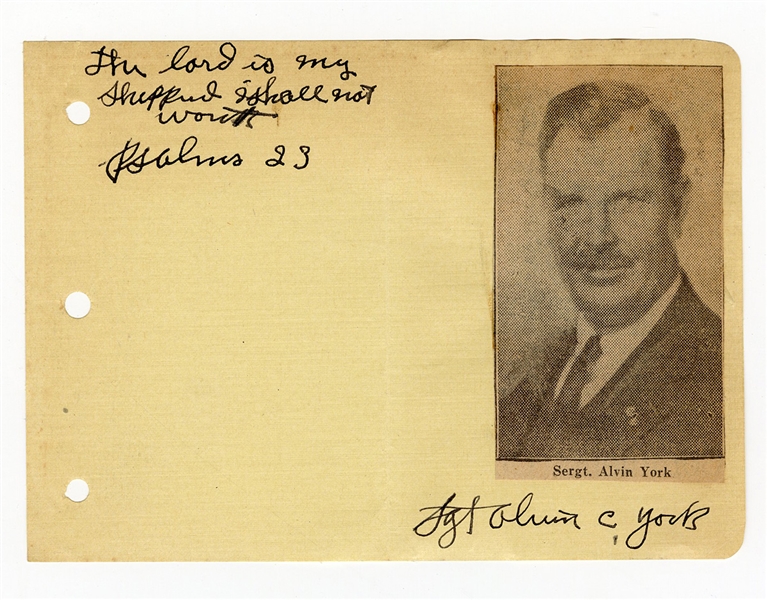 The lord is my
Shepperd i shall not
wont
Psalms 23
Sergt. Alvin York
Sgt Alvin C York